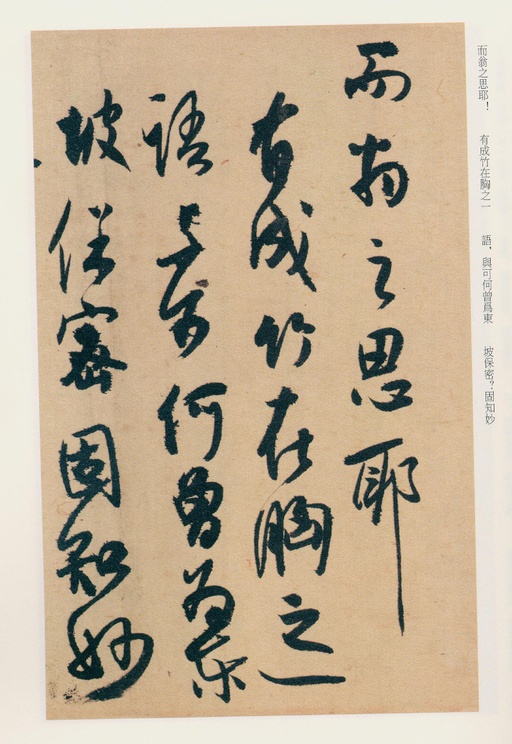 而翁之思耶
有成竹在胸之一
語與可何曾為東
坡保密固知妙
而翁之思耶！　有成竹在胸之一　語，與可何曾爲東　坡保密？固知妙